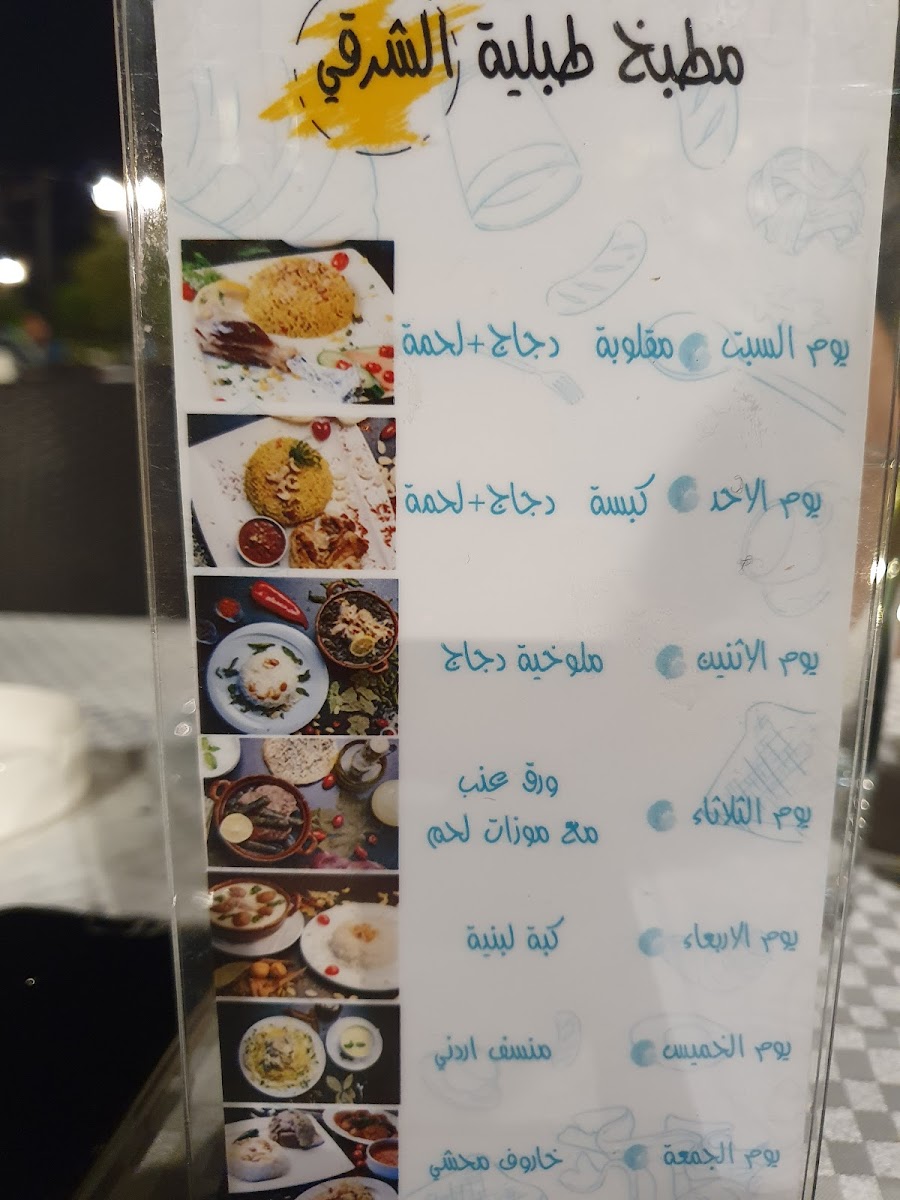 مطبخ طبلية الشرقي
يوم السبت مقلوبة دجاج+لحمة
يوم الاحد كبسة دجاج+لحمة
يوم الاثنين ملوخية دجاج
يوم الثلاثاء ورق عنب
مع موزات لحم
يوم الاربعاء كبة لبنية
يوم الخميس منسف اردني
يوم الجمعة خاروف محشي